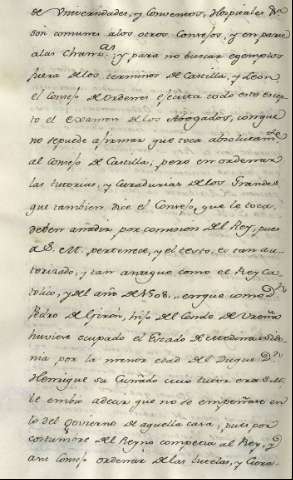 de Universidades, y Conventos, Hospitales &c
son comunes alos otros Consejos, y en parte
alas Chanc.as y para no buscar egemplos
fuera delos terminos de Castilla, y Leon
el Consejo de Ordenes egecuta todo esto excep
to el examen delos Abogados, conque
no sepuede afirmar que toca absolutam.te
al Consejo de Castilla, pero en ordenar
las tutorias, y Curadurias delos Grandes
que tambien dice el Consejo, que le toca
deben añadir por comision del Rey, pues
a S. M. pertenece, y el texto, es tan au
torizado, y tan antiguo como el Rey Ca
tolico, y del año de 1508. enque como D.n
Pedro de Giron, hijo del Conde de Ureña
huviese ocupado el Estado de Medina Sido
nia por la menor edad del Duque D.n
Henrique su Cuñado cuio tutor era S. M.
le embio adecir que no se empeñase en
lo del govierno de aquella casa, pues por
costumbre del Reyno competia al Rey, y
asu Consejo ordenar delas tutelas, y Cura